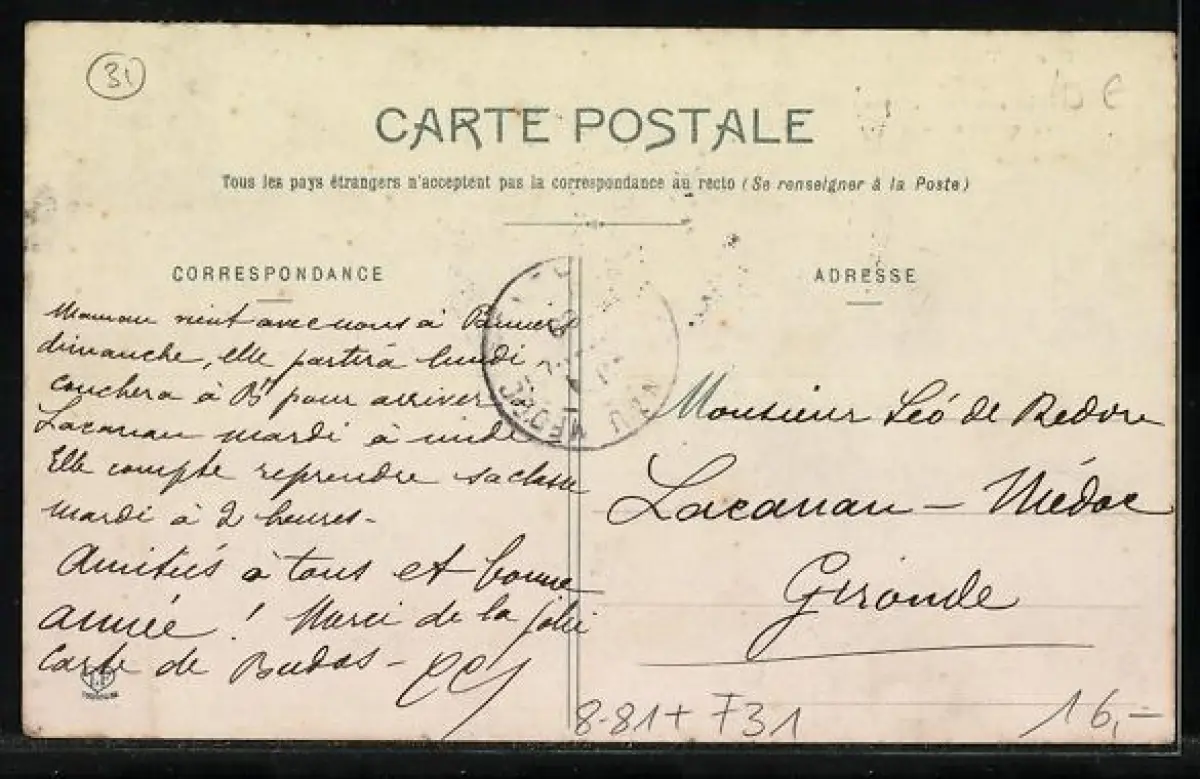 31
10 €
CARTE POSTALE
Tous les pays étrangers n'acceptent pas la correspondance au recto (Se renseigner à la Poste)
CORRESPONDANCE
ADRESSE
Maman vient avec nous à
dimanche, elle partira lundi
couchera à Bx pour arriver à
Lacanau mardi à midi
Elle compte reprendre sa classe
mardi à 2 heures-
Amitiés à tous et bonne
année ! Merci de la jolie
carte de Budos -
Monsieur Léo de Redon
Lacanau - Médoc
Gironde
MEDOC
8-81+ F31
16,-